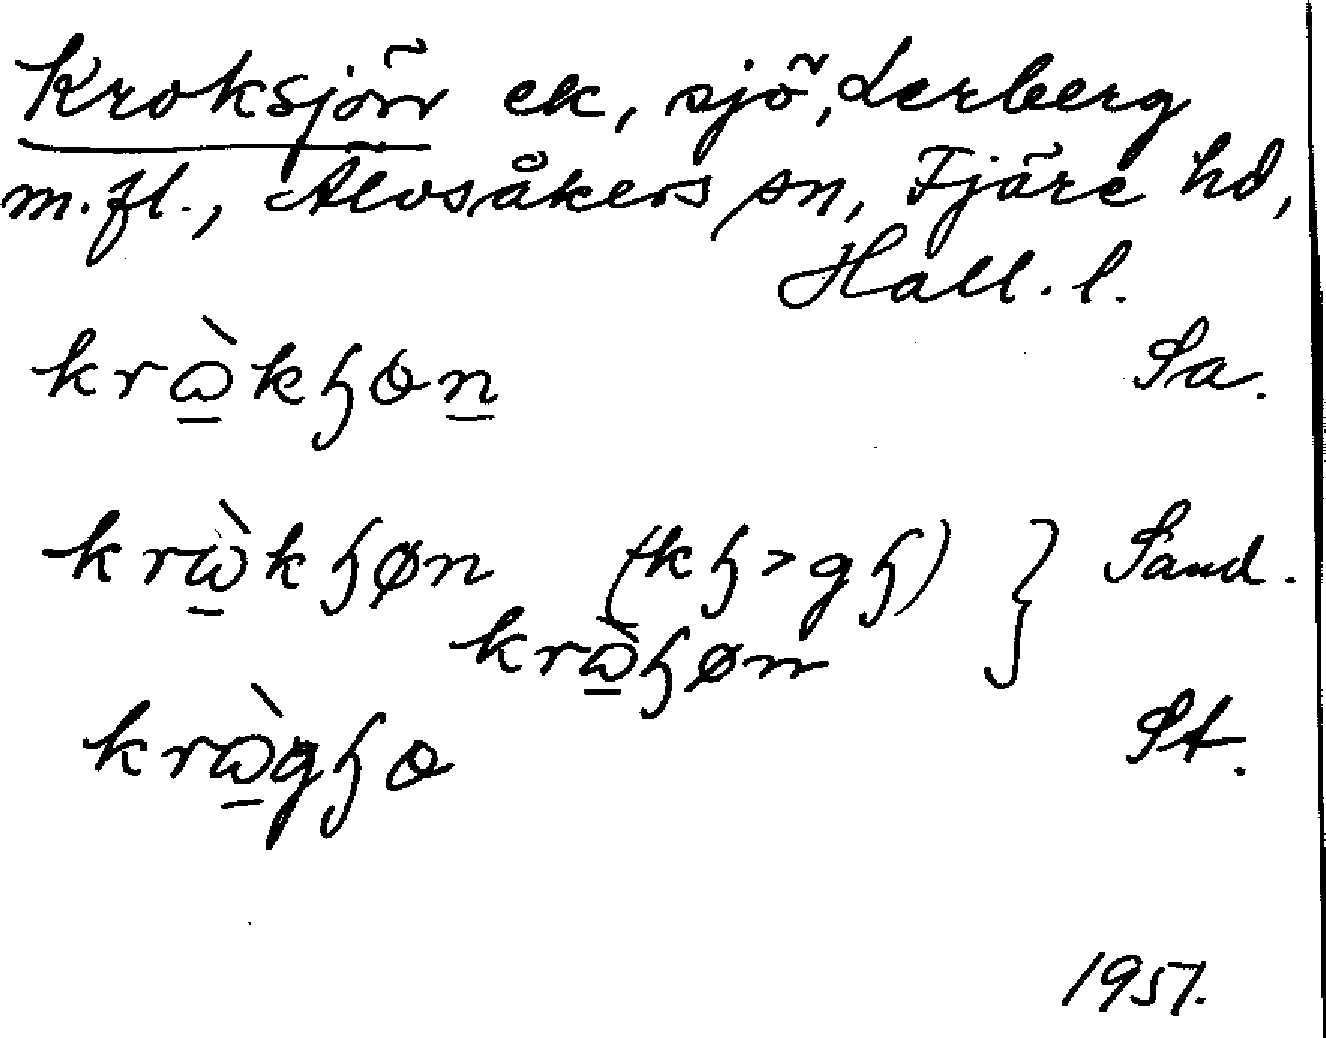 Kroksjön ek, sjö, Lerberg
m.fl., Älvsåkers sn, Fjäre hd,
Hall. l.
krὼ̲kɧɵn̲ Sa.
krὼ̲kɧøn (kɧ>gɧ) } Sand.
krὼ̲ɧøn
krὼ̲gɧɵ St.
1951.